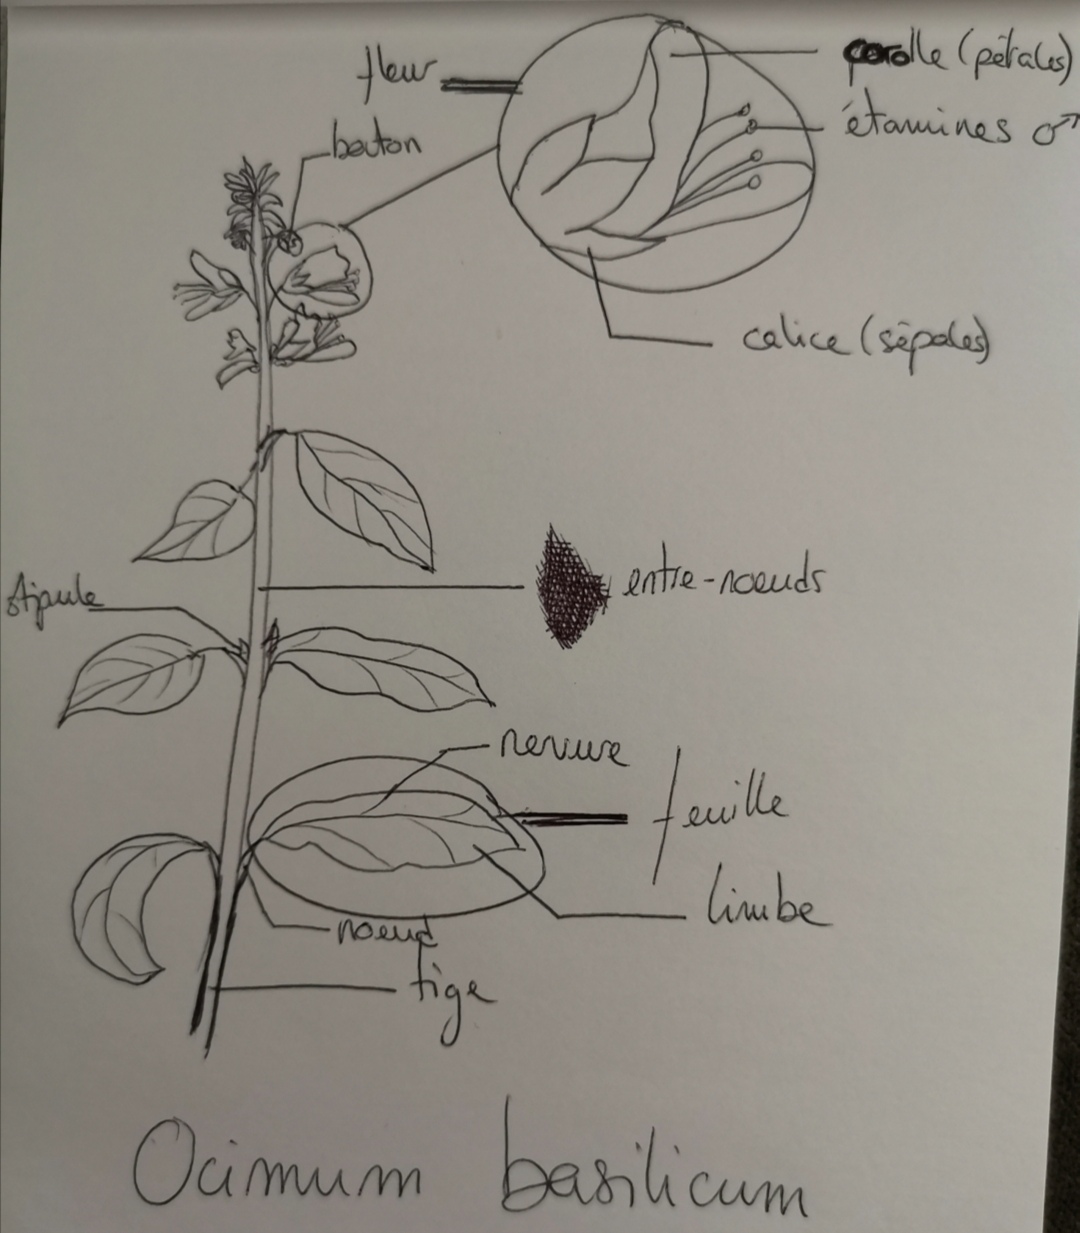 fleur
corolle (pétales)
étamines ♂
bouton
calice (sépales)
entre-noeuds
stipule
nervure
feuille
limbe
noeud
tige
Ocimum basilicum